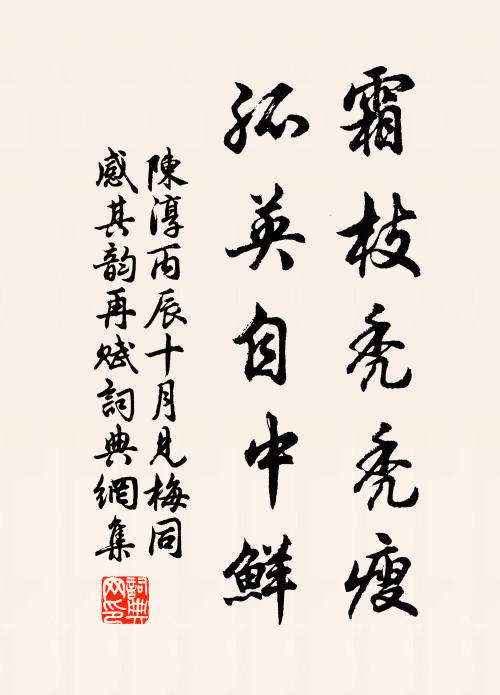 霜枝禿禿瘦
孤英自中鮮
陳淳丙辰十月見梅同
感其韵再赋詞典網集
詞典網印